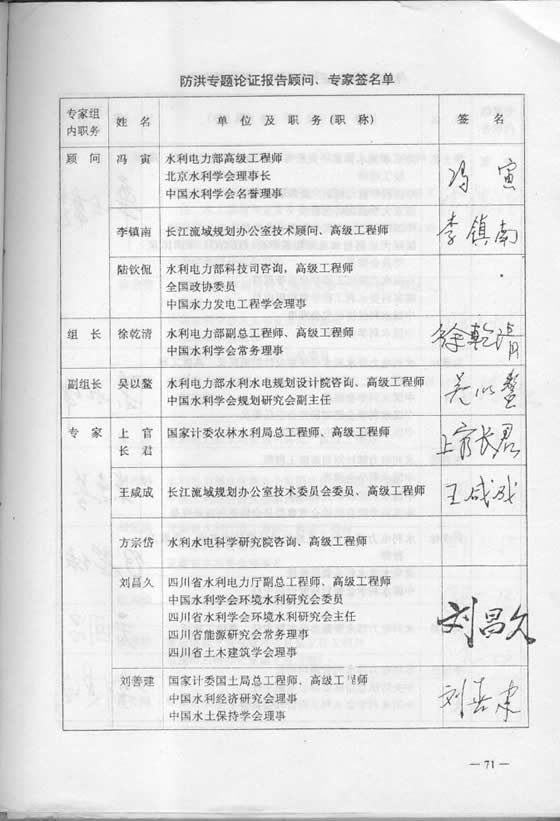 防洪专题论证报告顾问、专家签名单
专家组
内职务
姓 名
单 位 及 职 务 (职 称)
签 名
顾 问
冯 寅
水利电力部高级工程师
北京水利学会理事长
中国水利学会名誉理事
冯 寅
李镇南
长江流域规划办公室技术顾问、高级工程师
李镇南
陆钦侃
水利电力部科技司咨询，高级工程师
全国政协委员
中国水力发电工程学会理事
组 长
徐乾清
水利电力部副总工程师、高级工程师
中国水利学会常务理事
徐乾清
副组长
吴以鳌
水利电力部水利水电规划设计院咨询、高级工程师
中国水利学会规划研究会副主任
吴以鳌
专 家
上 官
长 君
国家计委农林水利局总工程师、高级工程师
上官长君
王咸成
长江流域规划办公室技术委员会委员、高级工程师
王咸成
方宗岱
水利水电科学研究院咨询、高级工程师
刘昌久
四川省水利电力厅副总工程师、高级工程师
中国水利学会环境水利研究会委员
四川省水利学会环境水利研究会主任
四川省能源研究会常务理事
四川省土木建筑学会理事
刘昌久
刘善建
国家计委国土局总工程师、高级工程师
中国水利经济研究会理事
中国水土保持学会理事
刘善建
— 71 —